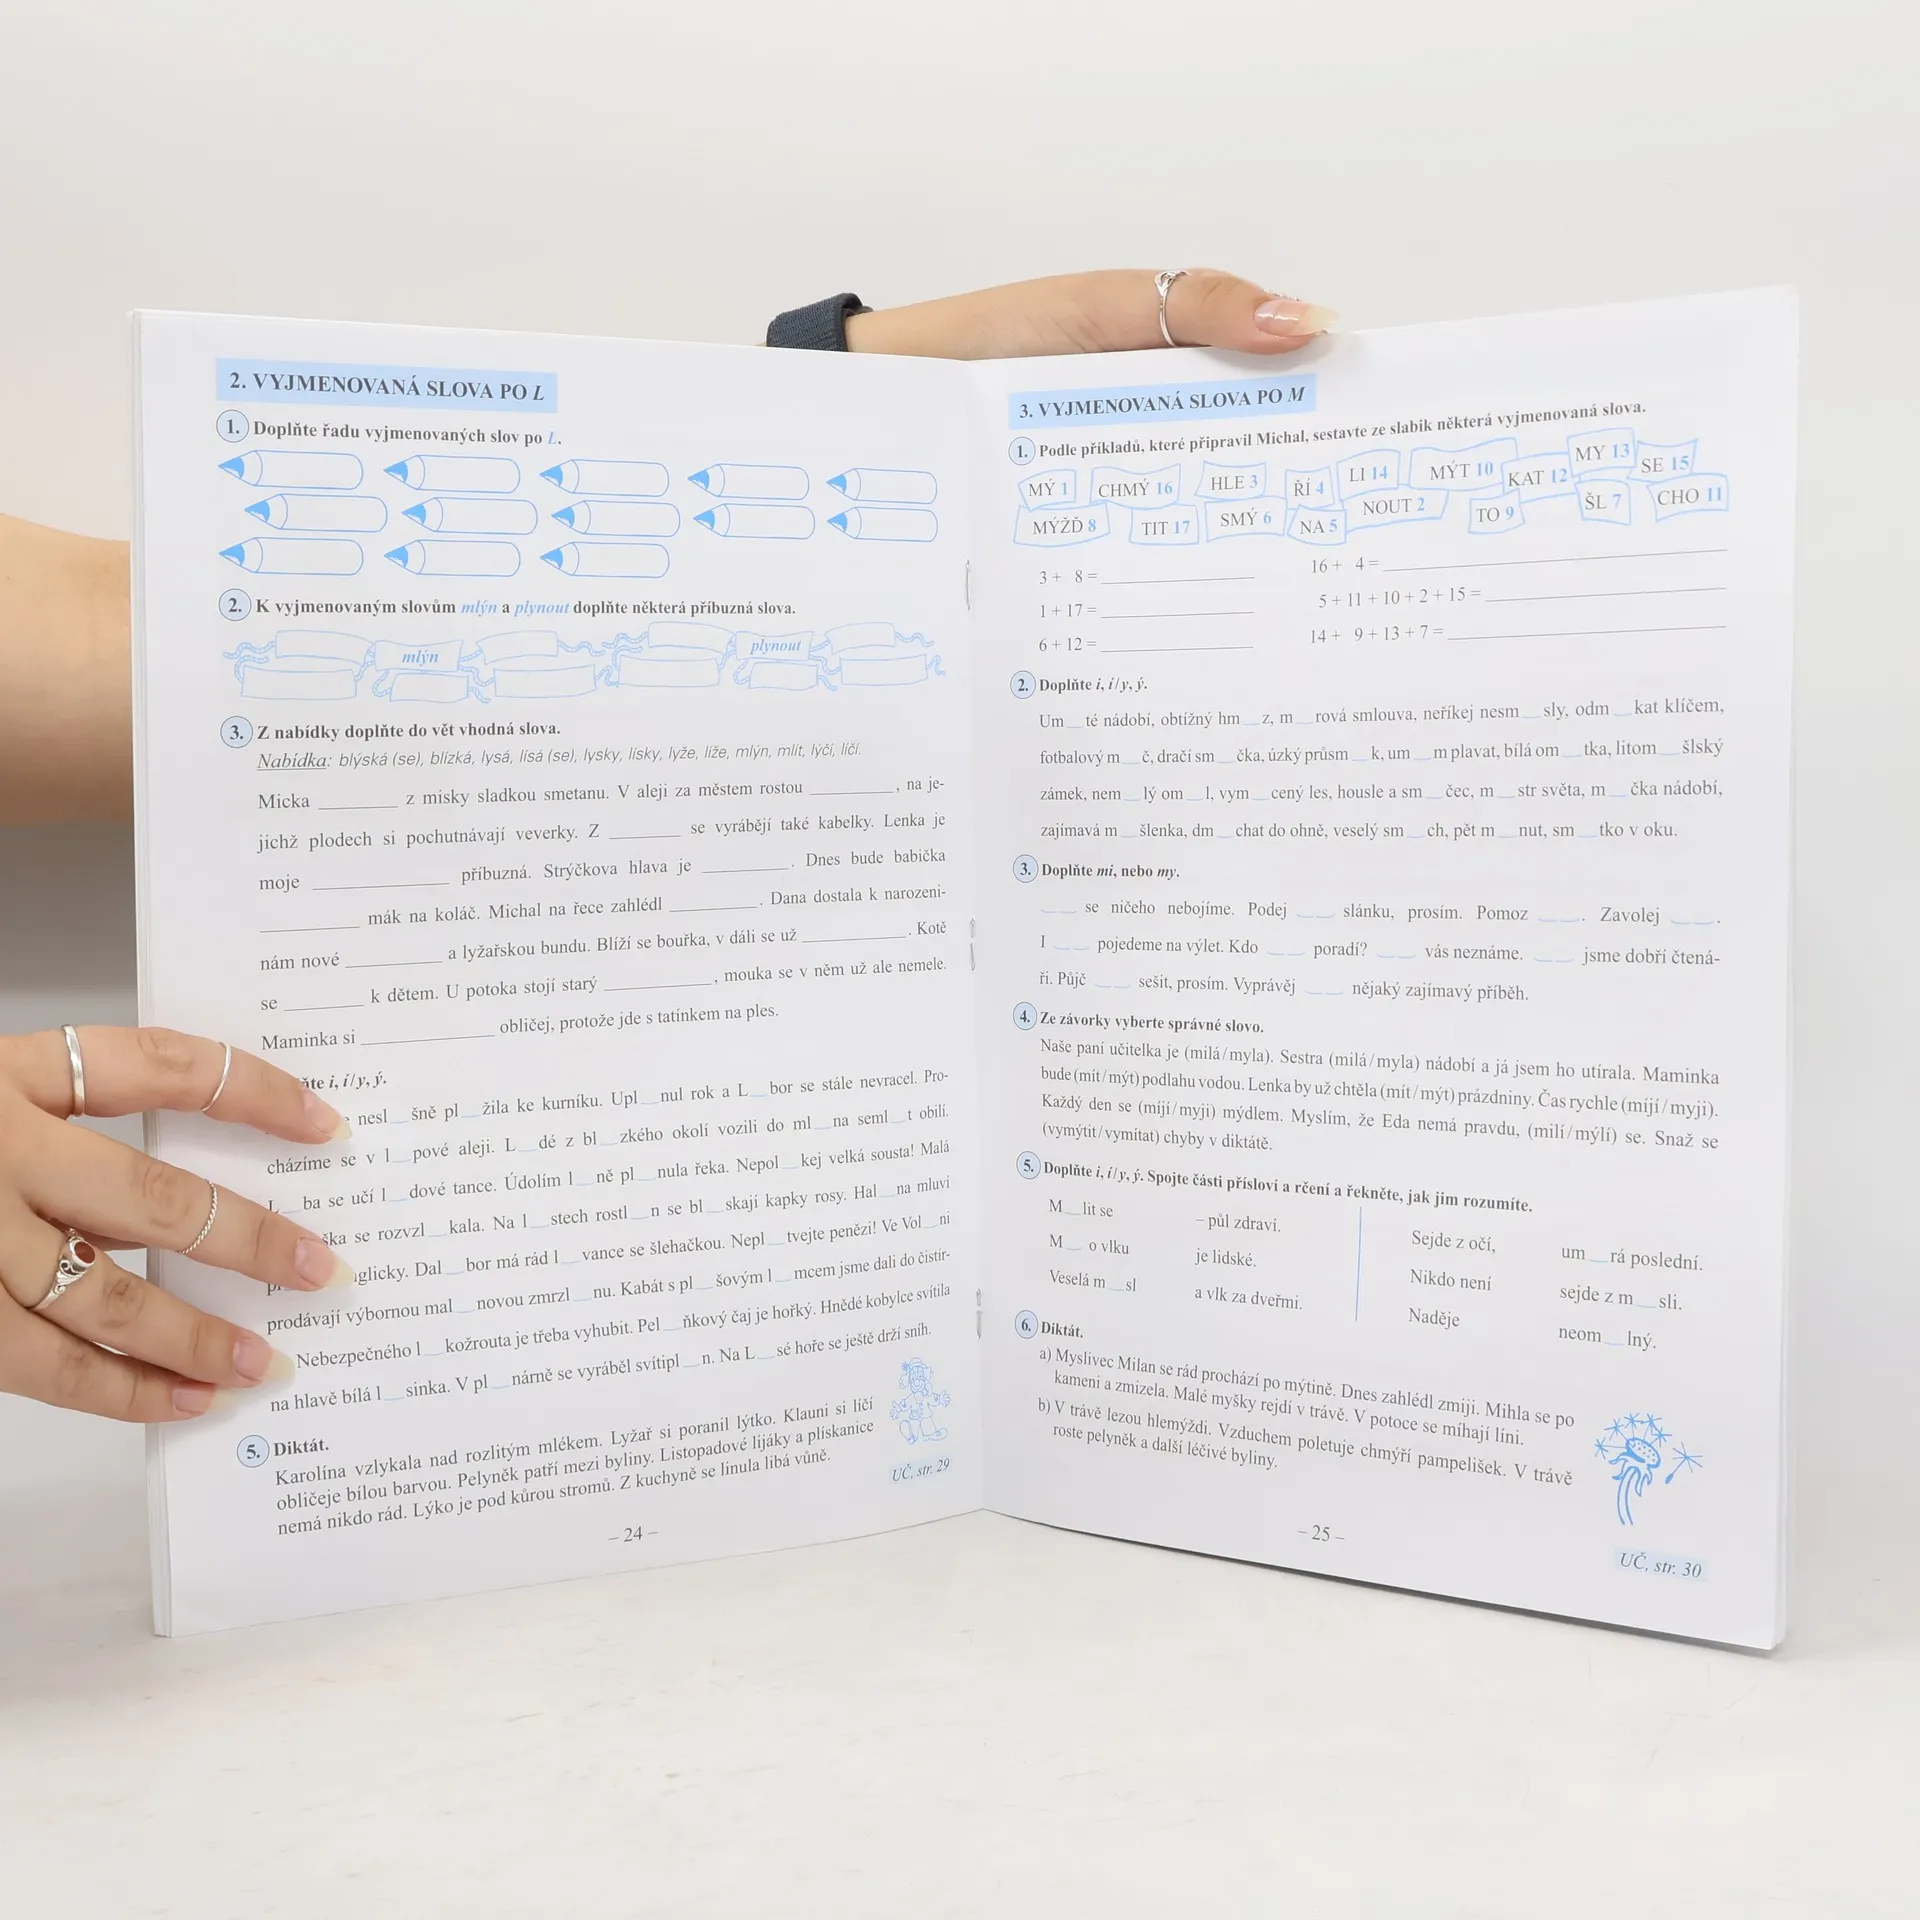 2. VYJMENOVANÁ SLOVA PO L
1. Doplňte řadu vyjmenovaných slov po L.
2. K vyjmenovaným slovům mlýn a plynout doplňte některá příbuzná slova.
mlýn
plynout
3. Z nabídky doplňte do vět vhodná slova.
Nabídka: blýská (se), blízká, lysá, lísá (se), lysky, lísky, lyže, líže, mlýn, mlít, lýčí, líčí.
Micka ________ z misky sladkou smetanu. V aleji za městem rostou ________, na je-
jichž plodech si pochutnávají veverky. Z ________ se vyrábějí také kabelky. Lenka je
moje ________ příbuzná. Strýčkova hlava je ________. Dnes bude babička
________ mák na koláč. Michal na řece zahlédl ________. Dana dostala k narozeni-
nám nové ________ a lyžařskou bundu. Blíží se bouřka, v dáli se už ________. Kotě
se ________ k dětem. U potoka stojí starý ________, mouka se v něm už ale nemele.
Maminka si ________ obličej, protože jde s tatínkem na ples.
i, í/y, ý.
nesl__šně pl__žila ke kurníku. Upl__nul rok a L__bor se stále nevracel. Pro-
cházíme se v l__pové aleji. L__dé z bl__zkého okolí vozili do ml__na seml__t obilí.
L__ba se učí l__dové tance. Údolím l__ně pl__nula řeka. Nepol__kej velká sousta! Malá
se rozvzl__kala. Na l__stech rostl__n se bl__skají kapky rosy. Hal__na mluví
anglicky. Dal__bor má rád l__vance se šlehačkou. Nepl__tvejte penězi! Ve Vol__ni
prodávají výbornou mal__novou zmrzl__nu. Kabát s pl__šovým l__mcem jsme dali do čistír-
Nebezpečného l__kožrouta je třeba vyhubit. Pel__ňkový čaj je hořký. Hnědé kobylce svítila
na hlavě bílá l__sinka. V pl__nárně se vyráběl svítipl__n. Na L__sé hoře se ještě drží sníh.
5. Diktát.
Karolína vzlykala nad rozlitým mlékem. Lyžař si poranil lýtko. Klauni si líčí
obličeje bílou barvou. Pelyněk patří mezi byliny. Listopadové lijáky a plískanice
nemá nikdo rád. Lýko je pod kůrou stromů. Z kuchyně se linula libá vůně.
UČ, str. 29
– 24 –
3. VYJMENOVANÁ SLOVA PO M
1. Podle příkladů, které připravil Michal, sestavte ze slabik některá vyjmenovaná slova.
MÝ 1 CHMÝ 16 HLE 3 ŘÍ 4 LI 14 MÝT 10 KAT 12 MY 13 SE 15
MÝŽĎ 8 TIT 17 SMÝ 6 NA 5 NOUT 2 TO 9 ŠL 7 CHO 11
3 + 8 = ________ 16 + 4 = ________
1 + 17 = ________ 5 + 11 + 10 + 2 + 15 = ________
6 + 12 = ________ 14 + 9 + 13 + 7 = ________
2. Doplňte i, í/y, ý.
Um__té nádobí, obtížný hm__z, m__rová smlouva, neříkej nesm__sly, odm__kat klíčem,
fotbalový m__č, dračí sm__čka, úzký průsm__k, um__m plavat, bílá om__tka, litom__šlský
zámek, nem__lý om__l, vym__cený les, housle a sm__čec, m__str světa, m__čka nádobí,
zajímavá m__šlenka, dm__chat do ohně, veselý sm__ch, pět m__nut, sm__tko v oku.
3. Doplňte mi, nebo my.
__ __ se ničeho nebojíme. Podej __ __ slánku, prosím. Pomoz __ __. Zavolej __ __.
I __ __ pojedeme na výlet. Kdo __ __ poradí? __ __ vás neznáme. __ __ jsme dobří čtená-
ři. Půjč __ __ sešit, prosím. Vyprávěj __ __ nějaký zajímavý příběh.
4. Ze závorky vyberte správné slovo.
Naše paní učitelka je (milá/myla). Sestra (milá/myla) nádobí a já jsem ho utírala. Maminka
bude (mít/mýt) podlahu vodou. Lenka by už chtěla (mít/mýt) prázdniny. Čas rychle (míjí/myji).
Každý den se (míjí/myji) mýdlem. Myslím, že Eda nemá pravdu, (milí/mýlí) se. Snaž se
(vymýtit/vymítat) chyby v diktátě.
5. Doplňte i, í/y, ý. Spojte části přísloví a rčení a řekněte, jak jim rozumíte.
M__lit se – půl zdraví. Sejde z očí, um__rá poslední.
M__ o vlku je lidské. Nikdo není sejde z m__sli.
Veselá m__sl a vlk za dveřmi. Naděje neom__lný.
6. Diktát.
a) Myslivec Milan se rád prochází po mýtině. Dnes zahlédl zmiji. Mihla se po
kameni a zmizela. Malé myšky rejdí v trávě. V potoce se míhají líni.
b) V trávě lezou hlemýždi. Vzduchem poletuje chmýří pampelišek. V trávě
roste pelyněk a další léčivé byliny.
UČ, str. 30
– 25 –